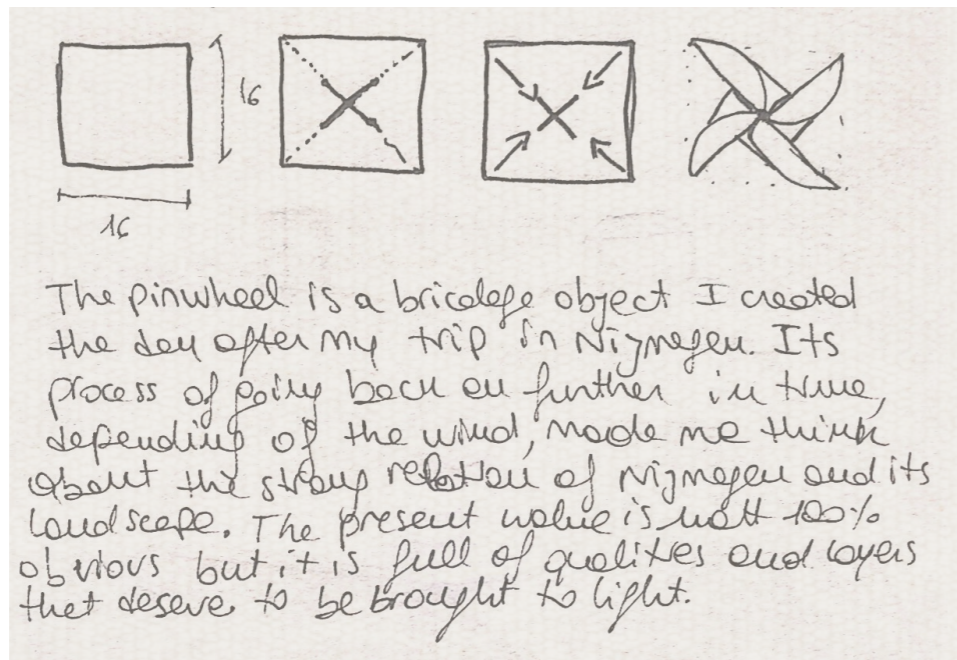 16
16
The pinwheel is a bricolage object I created
the day after my trip in Nijmegen. Its
process of going back en further in time,
depending of the wind, made me think
about the strong relation of Nijmegen and its
landscape. The present value is nott 100%
obvious but it is full of qualities and layers
that deserve to be brought to light.